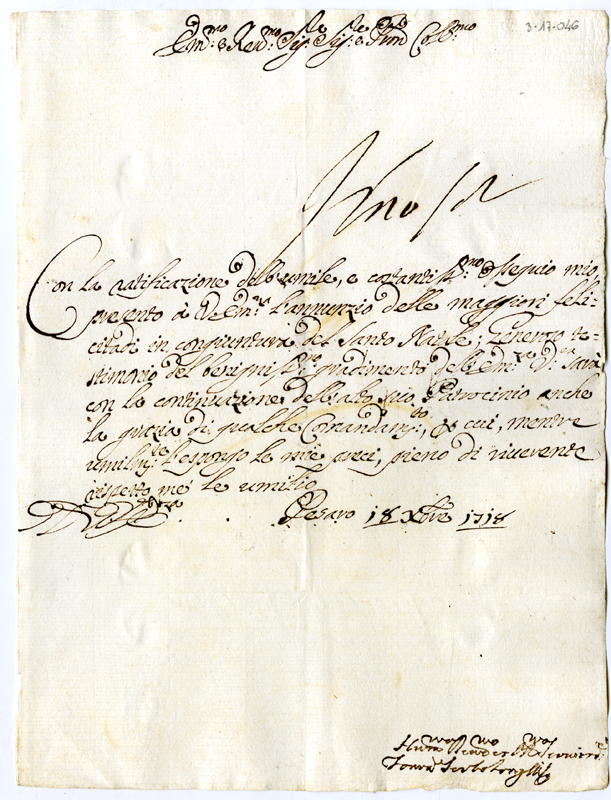 3-17-046
Em.mo e Rev.mo Sig.re Sig.re e Pron Col.mo
Con la ratificazione dell'umile, e costantiss.mo ossequio mio,
presento à V. Em.za l'annunzio delle maggiori feli=
citadi in congiuntura del Santo Natale; Generoso te=
stimonio del benigniss.mo gradimento dell'Em.za V.ra sarà
con la continuazione dell'alto suo Patrocinio anche
la grazia di qualche Comandam.to, à cui, mentre
umilm.te l'espongo le mie preci, pieno di riverente
rispetto me le umilio
Pesaro 18 Xbre 1718
Hum.mo